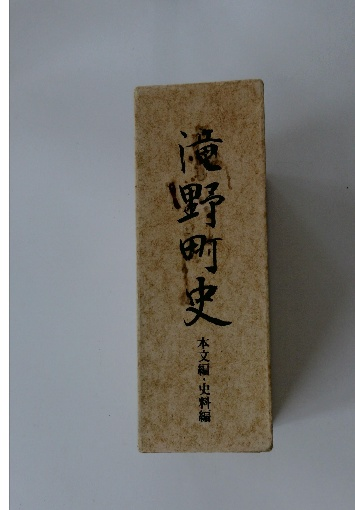 滝野町史
本文編・史料編